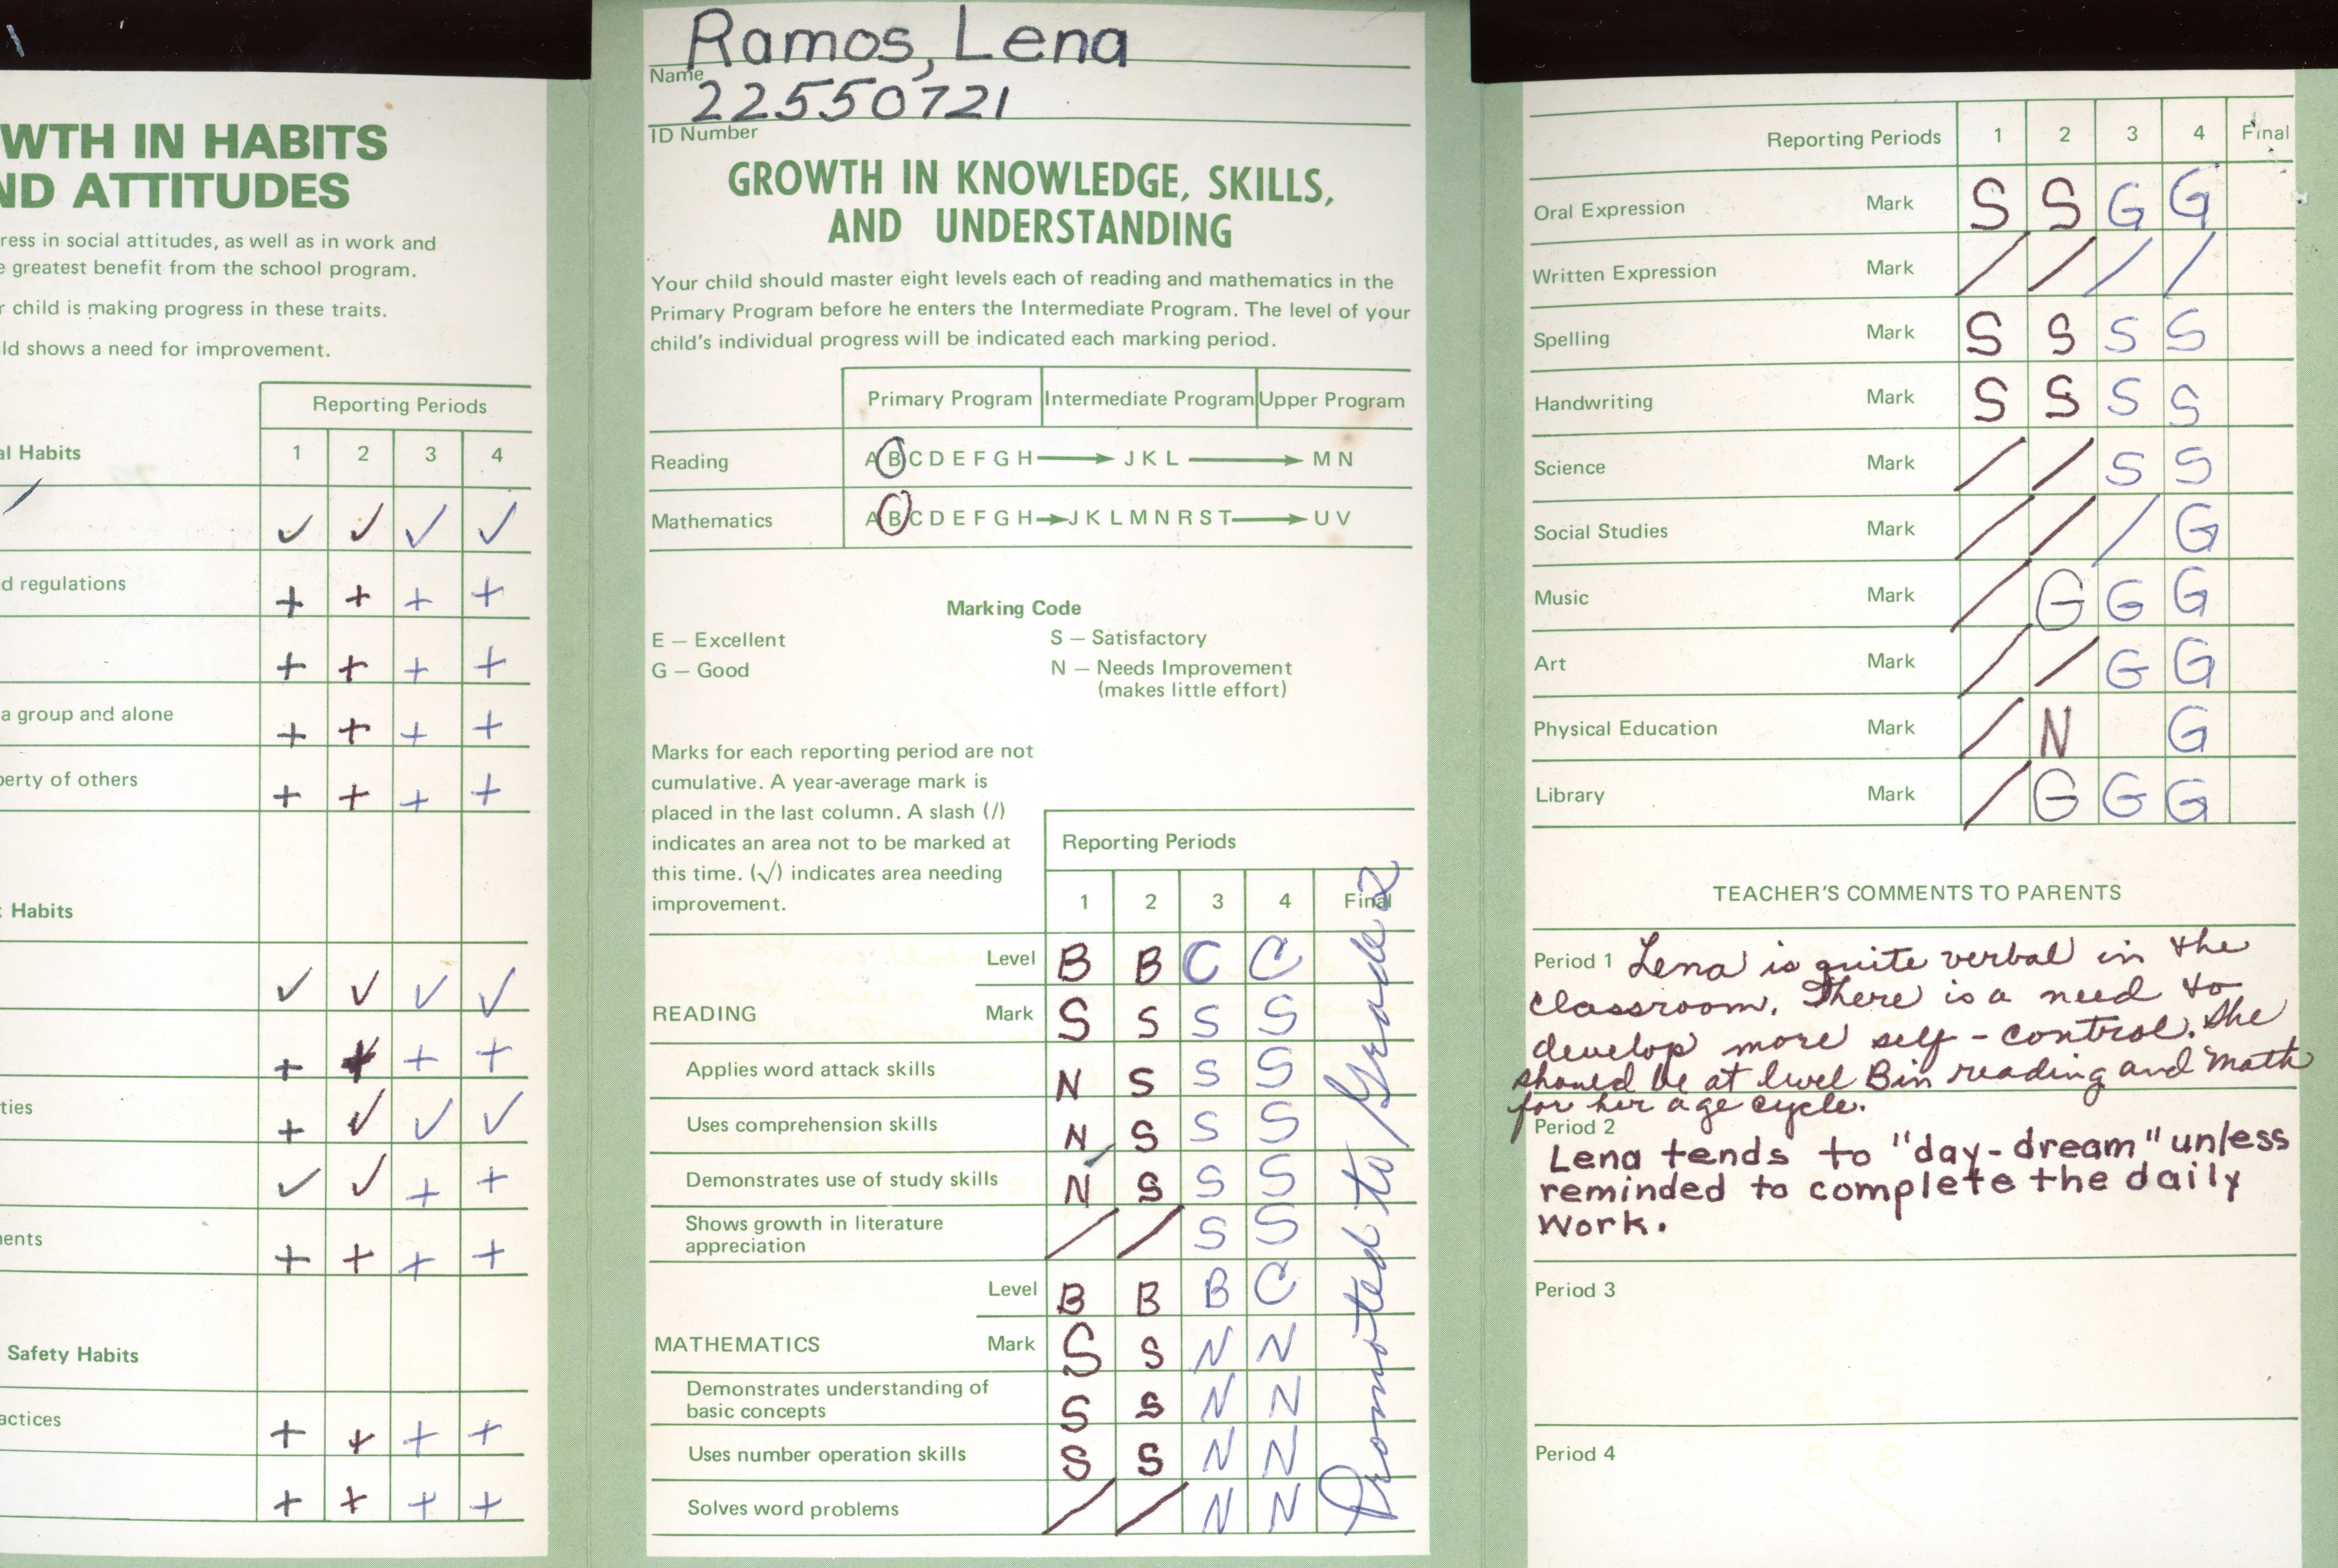 WTH IN HABITS
ND ATTITUDES
ress in social attitudes, as well as in work and
e greatest benefit from the school program.
r child is making progress in these traits.
ld shows a need for improvement.
Reporting Periods
al Habits 1 2 3 4
✓ ✓ ✓ ✓
d regulations + + + +
+ + + +
a group and alone + + + +
perty of others + + + +
Habits
✓ ✓ ✓ ✓
+ + + +
ties + ✓ ✓ ✓
✓ ✓ + +
ents + + + +
Safety Habits
actices + + + +
+ + + +
Ramos, Lena
Name
22550721
ID Number
GROWTH IN KNOWLEDGE, SKILLS,
AND UNDERSTANDING
Your child should master eight levels each of reading and mathematics in the
Primary Program before he enters the Intermediate Program. The level of your
child's individual progress will be indicated each marking period.
Primary Program Intermediate Program Upper Program
Reading A B C D E F G H → J K L → M N
Mathematics A B C D E F G H → J K L M N R S T → U V
Marking Code
E — Excellent S — Satisfactory
G — Good N — Needs Improvement
(makes little effort)
Marks for each reporting period are not
cumulative. A year-average mark is
placed in the last column. A slash (/)
indicates an area not to be marked at
this time. (√) indicates area needing
improvement.
Reporting Periods
1 2 3 4 Final
Level B B C C
READING Mark S S S S
Applies word attack skills N S S S
Uses comprehension skills N S S S
Demonstrates use of study skills N ✓ S S S
Shows growth in literature
appreciation / / S S
Level B B B C
MATHEMATICS Mark S S N N
Demonstrates understanding of
basic concepts S S N N
Uses number operation skills S S N N
Solves word problems / / N N
Promoted to Grade 2
Reporting Periods 1 2 3 4 Final
Oral Expression Mark S S G G
Written Expression Mark / / / /
Spelling Mark S S S S
Handwriting Mark S S S S
Science Mark / / S S
Social Studies Mark / / / G
Music Mark / G G G
Art Mark / / G G
Physical Education Mark / N G
Library Mark / G G G
TEACHER'S COMMENTS TO PARENTS
Period 1 Lena is quite verbal in the
classroom. There is a need to
develop more self-control. She
should be at level B in reading and math
for her age cycle.
Period 2
Lena tends to "day-dream" unless
reminded to complete the daily
work.
Period 3
Period 4